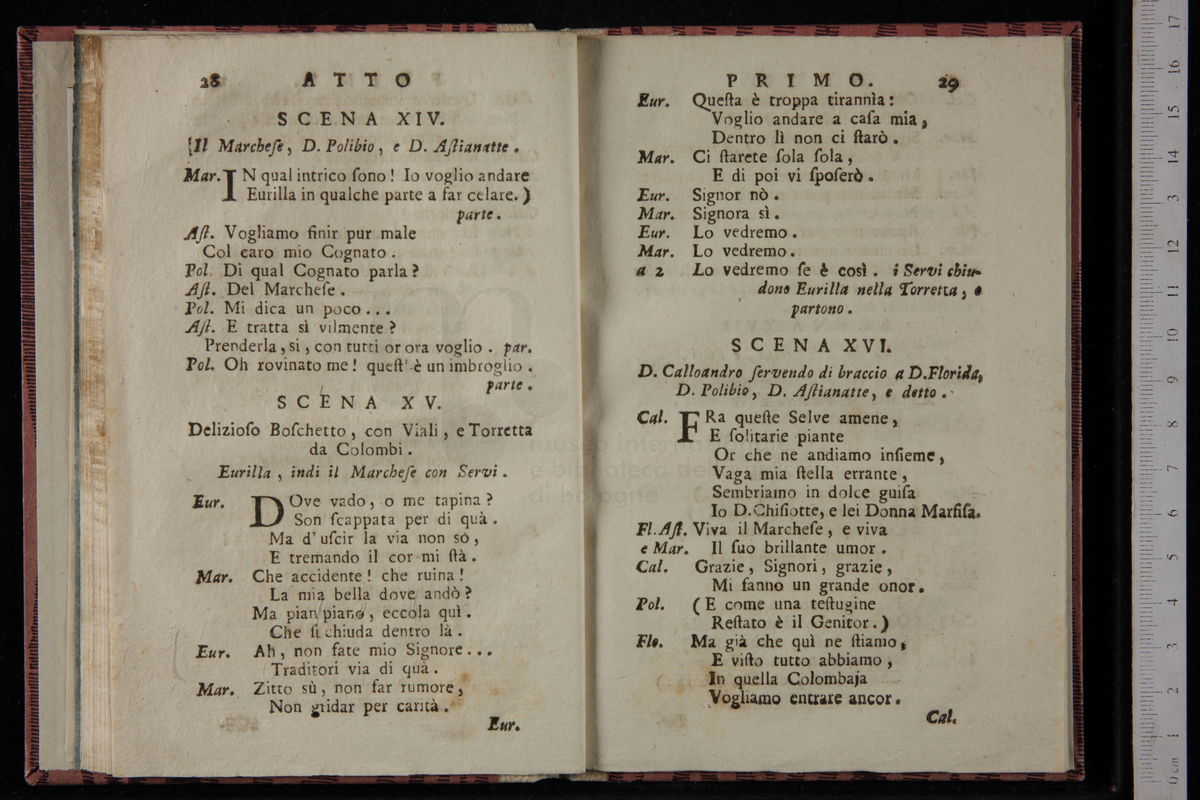 28 ATTO
SCENA XIV.
[Il Marcheſe, D. Polibio, e D. Aſtianatte.
Mar. IN qual intrico ſono! Io voglio andare
Eurilla in qualche parte a far celare. )
parte.
Aſt. Vogliamo finir pur male
Col caro mio Cognato.
Pol. Di qual Cognato parla?
Aſt. Del Marcheſe.
Pol. Mi dica un poco...
Aſt. E tratta sì vilmente?
Prenderla, si, con tutti or ora voglio. par.
Pol. Oh rovinato me! queſt' è un imbroglio.
parte.
SCENA XV.
Delizioſo Boſchetto, con Viali, e Torretta
da Colombi.
Eurilla, indi il Marcheſe con Servi.
Eur. DOve vado, o me tapina?
Son ſcappata per di quà.
Ma d'uſcir la via non sò,
E tremando il cor mi ſtà.
Mar. Che accidente! che ruina!
La mia bella dove andò?
Ma pian piano, eccola quì.
Che ſi chiuda dentro là.
Eur. Ah, non fate mio Signore...
Traditori via di quà.
Mar. Zitto sù, non far rumore,
Non gridar per carità.
Eur.
PRIMO. 29
Eur. Queſta è troppa tirannìa:
Voglio andare a caſa mia,
Dentro lì non ci ſtarò.
Mar. Ci ſtarete ſola ſola,
E di poi vi ſpoſerò.
Eur. Signor nò.
Mar. Signora sì.
Eur. Lo vedremo.
Mar. Lo vedremo.
a 2 Lo vedremo ſe è così. i Servi chiu-
dono Eurilla nella Torretta, e
partono.
SCENA XVI.
D. Calloandro ſervendo di braccio a D. Florida,
D. Polibio, D. Aſtianatte, e detto.
Cal. FRa queſte Selve amene,
E ſolitarie piante
Or che ne andiamo inſieme,
Vaga mia ſtella errante,
Sembriamo in dolce guiſa
Io D. Chiſiotte, e lei Donna Marfiſa.
Fl. Aſt. Viva il Marcheſe, e viva
e Mar. Il ſuo brillante umor.
Cal. Grazie, Signori, grazie,
Mi fanno un grande onor.
Pol. ( E come una teſtugine
Reſtato è il Genitor. )
Flo. Ma già che quì ne ſtiamo,
E viſto tutto abbiamo,
In quella Colombaja
Vogliamo entrare ancor.
Cal.
0 cm 1 2 3 4 5 6 7 8 9 10 11 12 13 14 15 16 17